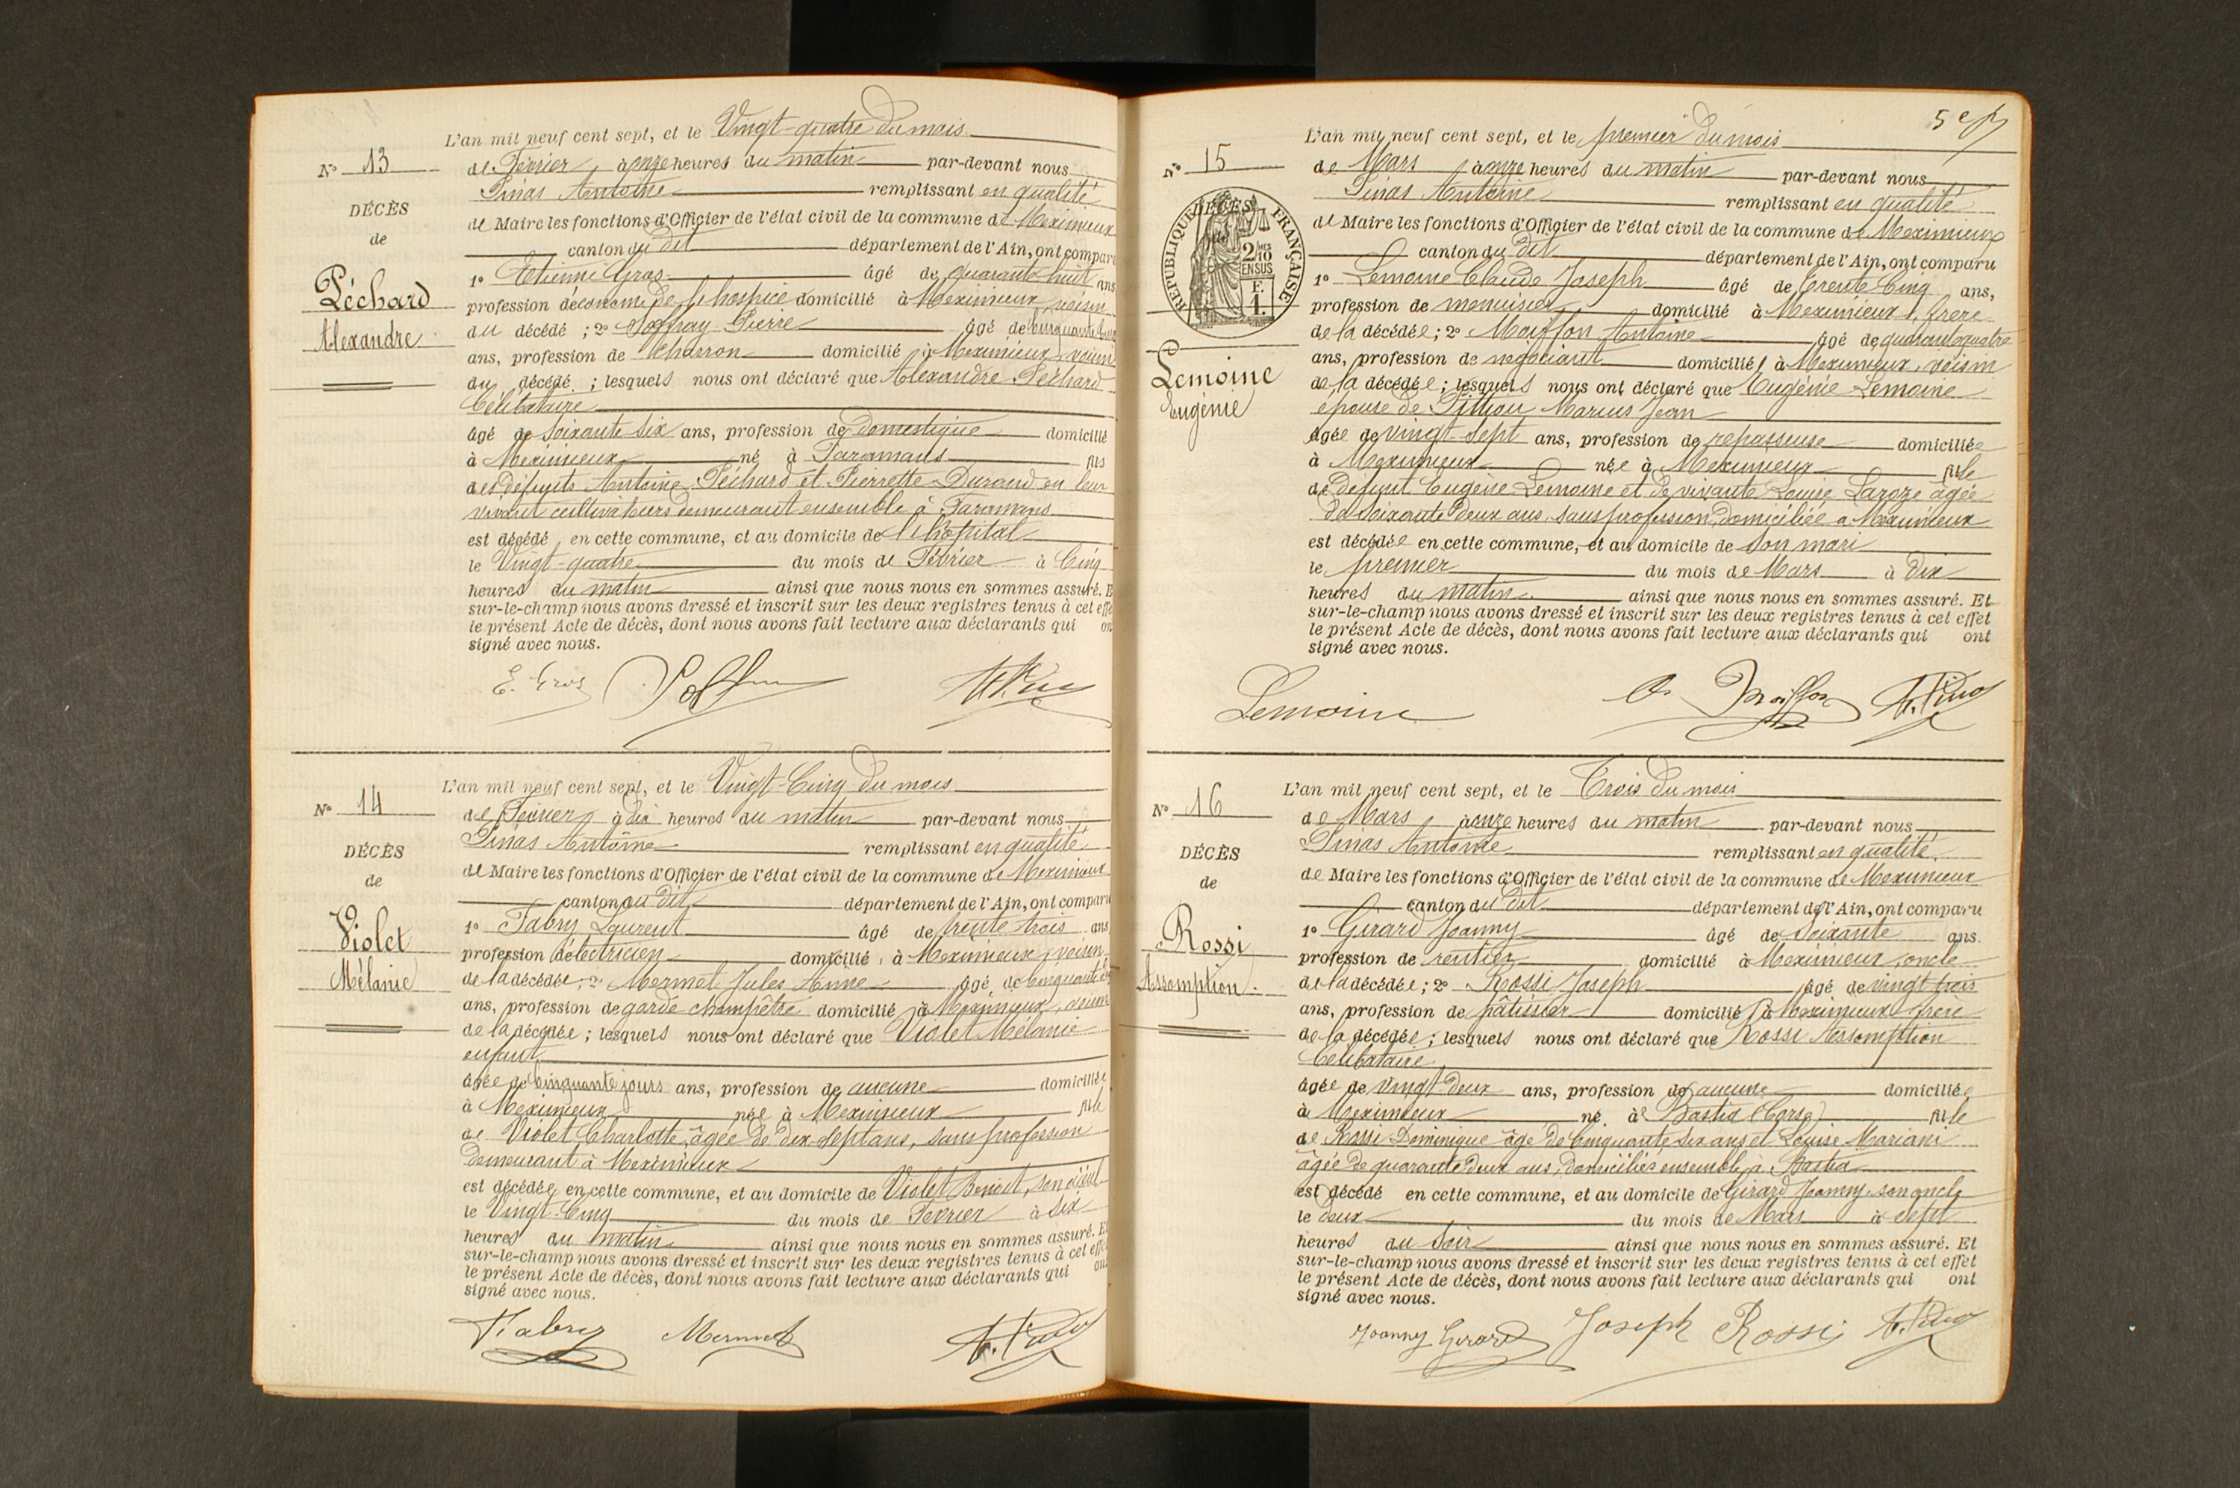 L'an mil neuf cent sept, et le Vingt-quatre du mois
N° 13
de Février à onze heures du matin par-devant nous
Pinas Antoine remplissant en qualité
DÉCÈS
de Maire les fonctions d'Officier de l'état civil de la commune de Meximieux
de
canton du dit département de l'Ain, ont comparu
1° Etienne Gros âgé de quarante huit ans
Péchard
Alexandre
profession d'économe de l'hospice domicilié à Meximieux voisin
du décédé ; 2° Pierre âgé de cinquante
ans, profession de charron domicilié à Meximieux, voisin
du décédé ; lesquels nous ont déclaré que Alexandre Péchard
Célibataire
âgé de soixante six ans, profession de domestique domicilié
à Meximieux né à Faramans fils
des défunts Antoine Péchard et Pierrette Durand en leur
vivant cultivateurs demeurant ensemble à Faramans
est décédé en cette commune, et au domicile de l'hôpital
le Vingt-quatre du mois de Février à Cinq
heures du matin ainsi que nous nous en sommes assuré. E
sur-le-champ nous avons dressé et inscrit sur les deux registres tenus à cet effe
le présent Acte de décès, dont nous avons fait lecture aux déclarants qui on
signé avec nous.
E. Gros
L'an mil neuf cent sept, et le Vingt-Cinq du mois
N° 14
de Février à dix heures du matin par-devant nous
Pinas Antoine remplissant en qualité
DÉCÈS
de Maire les fonctions d'Officier de l'état civil de la commune de Meximieux
de
canton du dit département de l'Ain, ont comparu
1° Fabry Laurent âgé de trente trois ans
Violet
Mélanie
profession d'électricien domicilié à Meximieux, voisin
de la décédée ; 2° Mermet Jules Aimé âgé de cinquante
ans, profession de garde champêtre domicilié à Meximieux, voisin
de la décédée ; lesquels nous ont déclaré que Violet Mélanie
enfant
âgée de Cinquante jours ans, profession de aucune domiciliée
à Meximieux née à Meximieux fille
de Violet Charlotte, âgée de dix-sept ans, sans profession
demeurant à Meximieux
est décédée en cette commune, et au domicile de Violet Benoit, son aïeul
le Vingt-Cinq du mois de Février à six
heures du matin ainsi que nous nous en sommes assuré. E
sur-le-champ nous avons dressé et inscrit sur les deux registres tenus à cet effe
le présent Acte de décès, dont nous avons fait lecture aux déclarants qui on
signé avec nous.
Fabry Mermet A. Pinas
5
L'an mil neuf cent sept, et le premier du mois
N° 15
de Mars à onze heures du matin par-devant nous
Pinas Antoine remplissant en qualité
DÉCÈS
RÉPUBLIQUE FRANÇAISE
2/10 EN SUS
F. 1.
de Maire les fonctions d'Officier de l'état civil de la commune de Meximieux
canton du dit département de l'Ain, ont comparu
1° Lemoine Claude Joseph âgé de trente Cinq ans,
profession de menuisier domicilié à Meximieux, frère
de la décédée ; 2° Moiffon Antoine âgé de quarante quatre
ans, profession de négociant domicilié à Meximieux, voisin
Lemoine
Eugénie
de la décédée ; lesquels nous ont déclaré que Eugénie Lemoine
épouse de Marius Jean
âgée de vingt-sept ans, profession de repasseuse domiciliée
à Meximieux née à Meximieux fille
de défunt Eugène Lemoine et de vivante Louise Laroze âgée
de soixante deux ans sans profession, domiciliée à Meximieux
est décédée en cette commune, et au domicile de son mari
le premier du mois de Mars à dix
heures du matin ainsi que nous nous en sommes assuré. Et
sur-le-champ nous avons dressé et inscrit sur les deux registres tenus à cet effet
le présent Acte de décès, dont nous avons fait lecture aux déclarants qui ont
signé avec nous.
Lemoine A. Moiffon A. Pinas
L'an mil neuf cent sept, et le Trois du mois
N° 16
de Mars à onze heures du matin par-devant nous
Pinas Antoine remplissant en qualité
DÉCÈS
de Maire les fonctions d'Officier de l'état civil de la commune de Meximieux
de
canton du dit département de l'Ain, ont comparu
1° Girard Joanny âgé de soixante ans.
Rossi
Assomption
profession de rentier domicilié à Meximieux, oncle
de la décédée ; 2° Rossi Joseph âgé de vingt trois
ans, profession de pâtissier domicilié à Meximieux frère
de la décédée ; lesquels nous ont déclaré que Rossi Assomption
Célibataire
âgée de vingt-deux ans, profession de aucune domiciliée
à Meximieux né à Bastia (Corse) fille
de Rossi Dominique âgé de Cinquante six ans et Louise Mariani
âgée de quarante deux ans, domiciliés ensemble à Bastia
est décédé en cette commune, et au domicile de Girard Joanny, son oncle
le deux du mois de Mars à sept
heures du soir ainsi que nous nous en sommes assuré. Et
sur-le-champ nous avons dressé et inscrit sur les deux registres tenus à cet effet
le présent Acte de décès, dont nous avons fait lecture aux déclarants qui ont
signé avec nous.
Joanny Girard Joseph Rossi A. Pinas